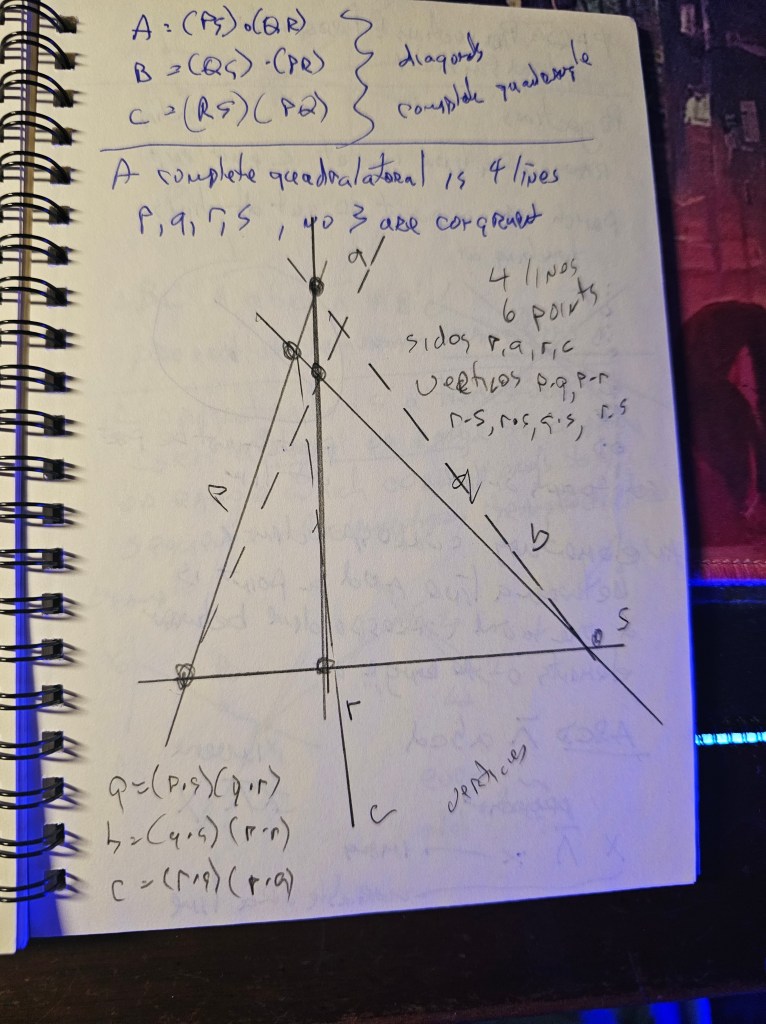 A = (PS)·(QR)
B = (QS)·(PR)
C = (RS)(PQ)
diagonals
complete quadrangle
A complete quadralatoral is 4 lines
P, q, r, s, no 3 are congruent
a
4 lines
6 points
sides p, q, r, s
vertices p·q, p·r
r·s
P
q
b
S
r
c
vertices
a = (p·s)(q·r)
b = (q·s)(p·r)
c = (r·s)(p·q)